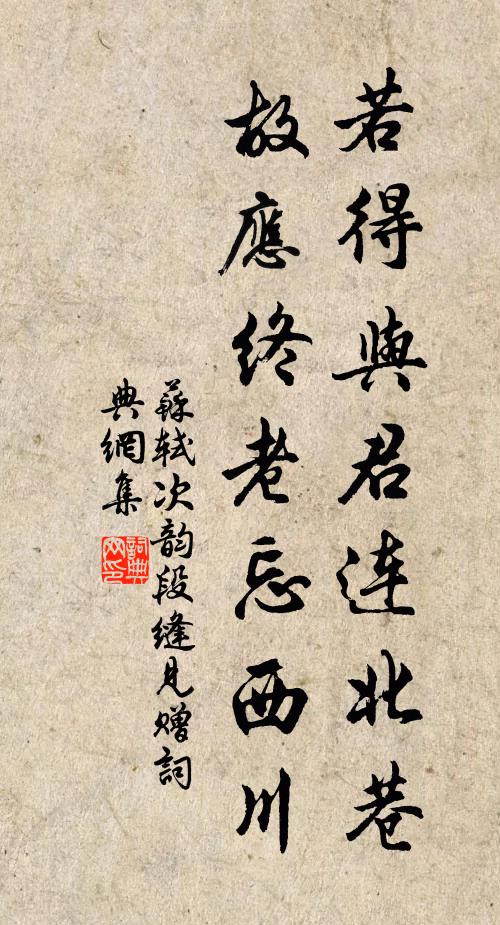 若得與君連北巷
故應終老忘西川
蘇軾次韵段縫見贈詞
典網集
詞典
网印